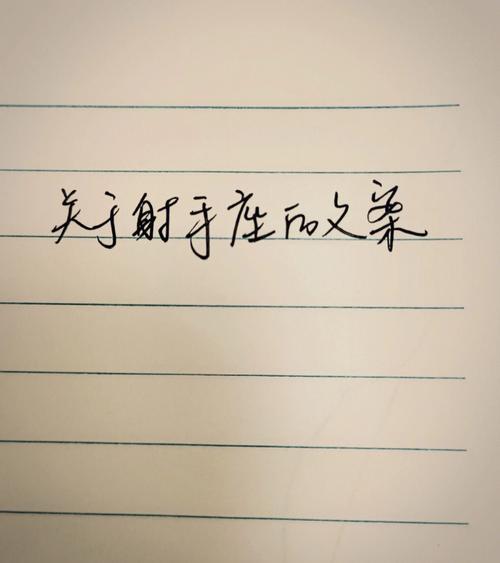 关于射手座的文案